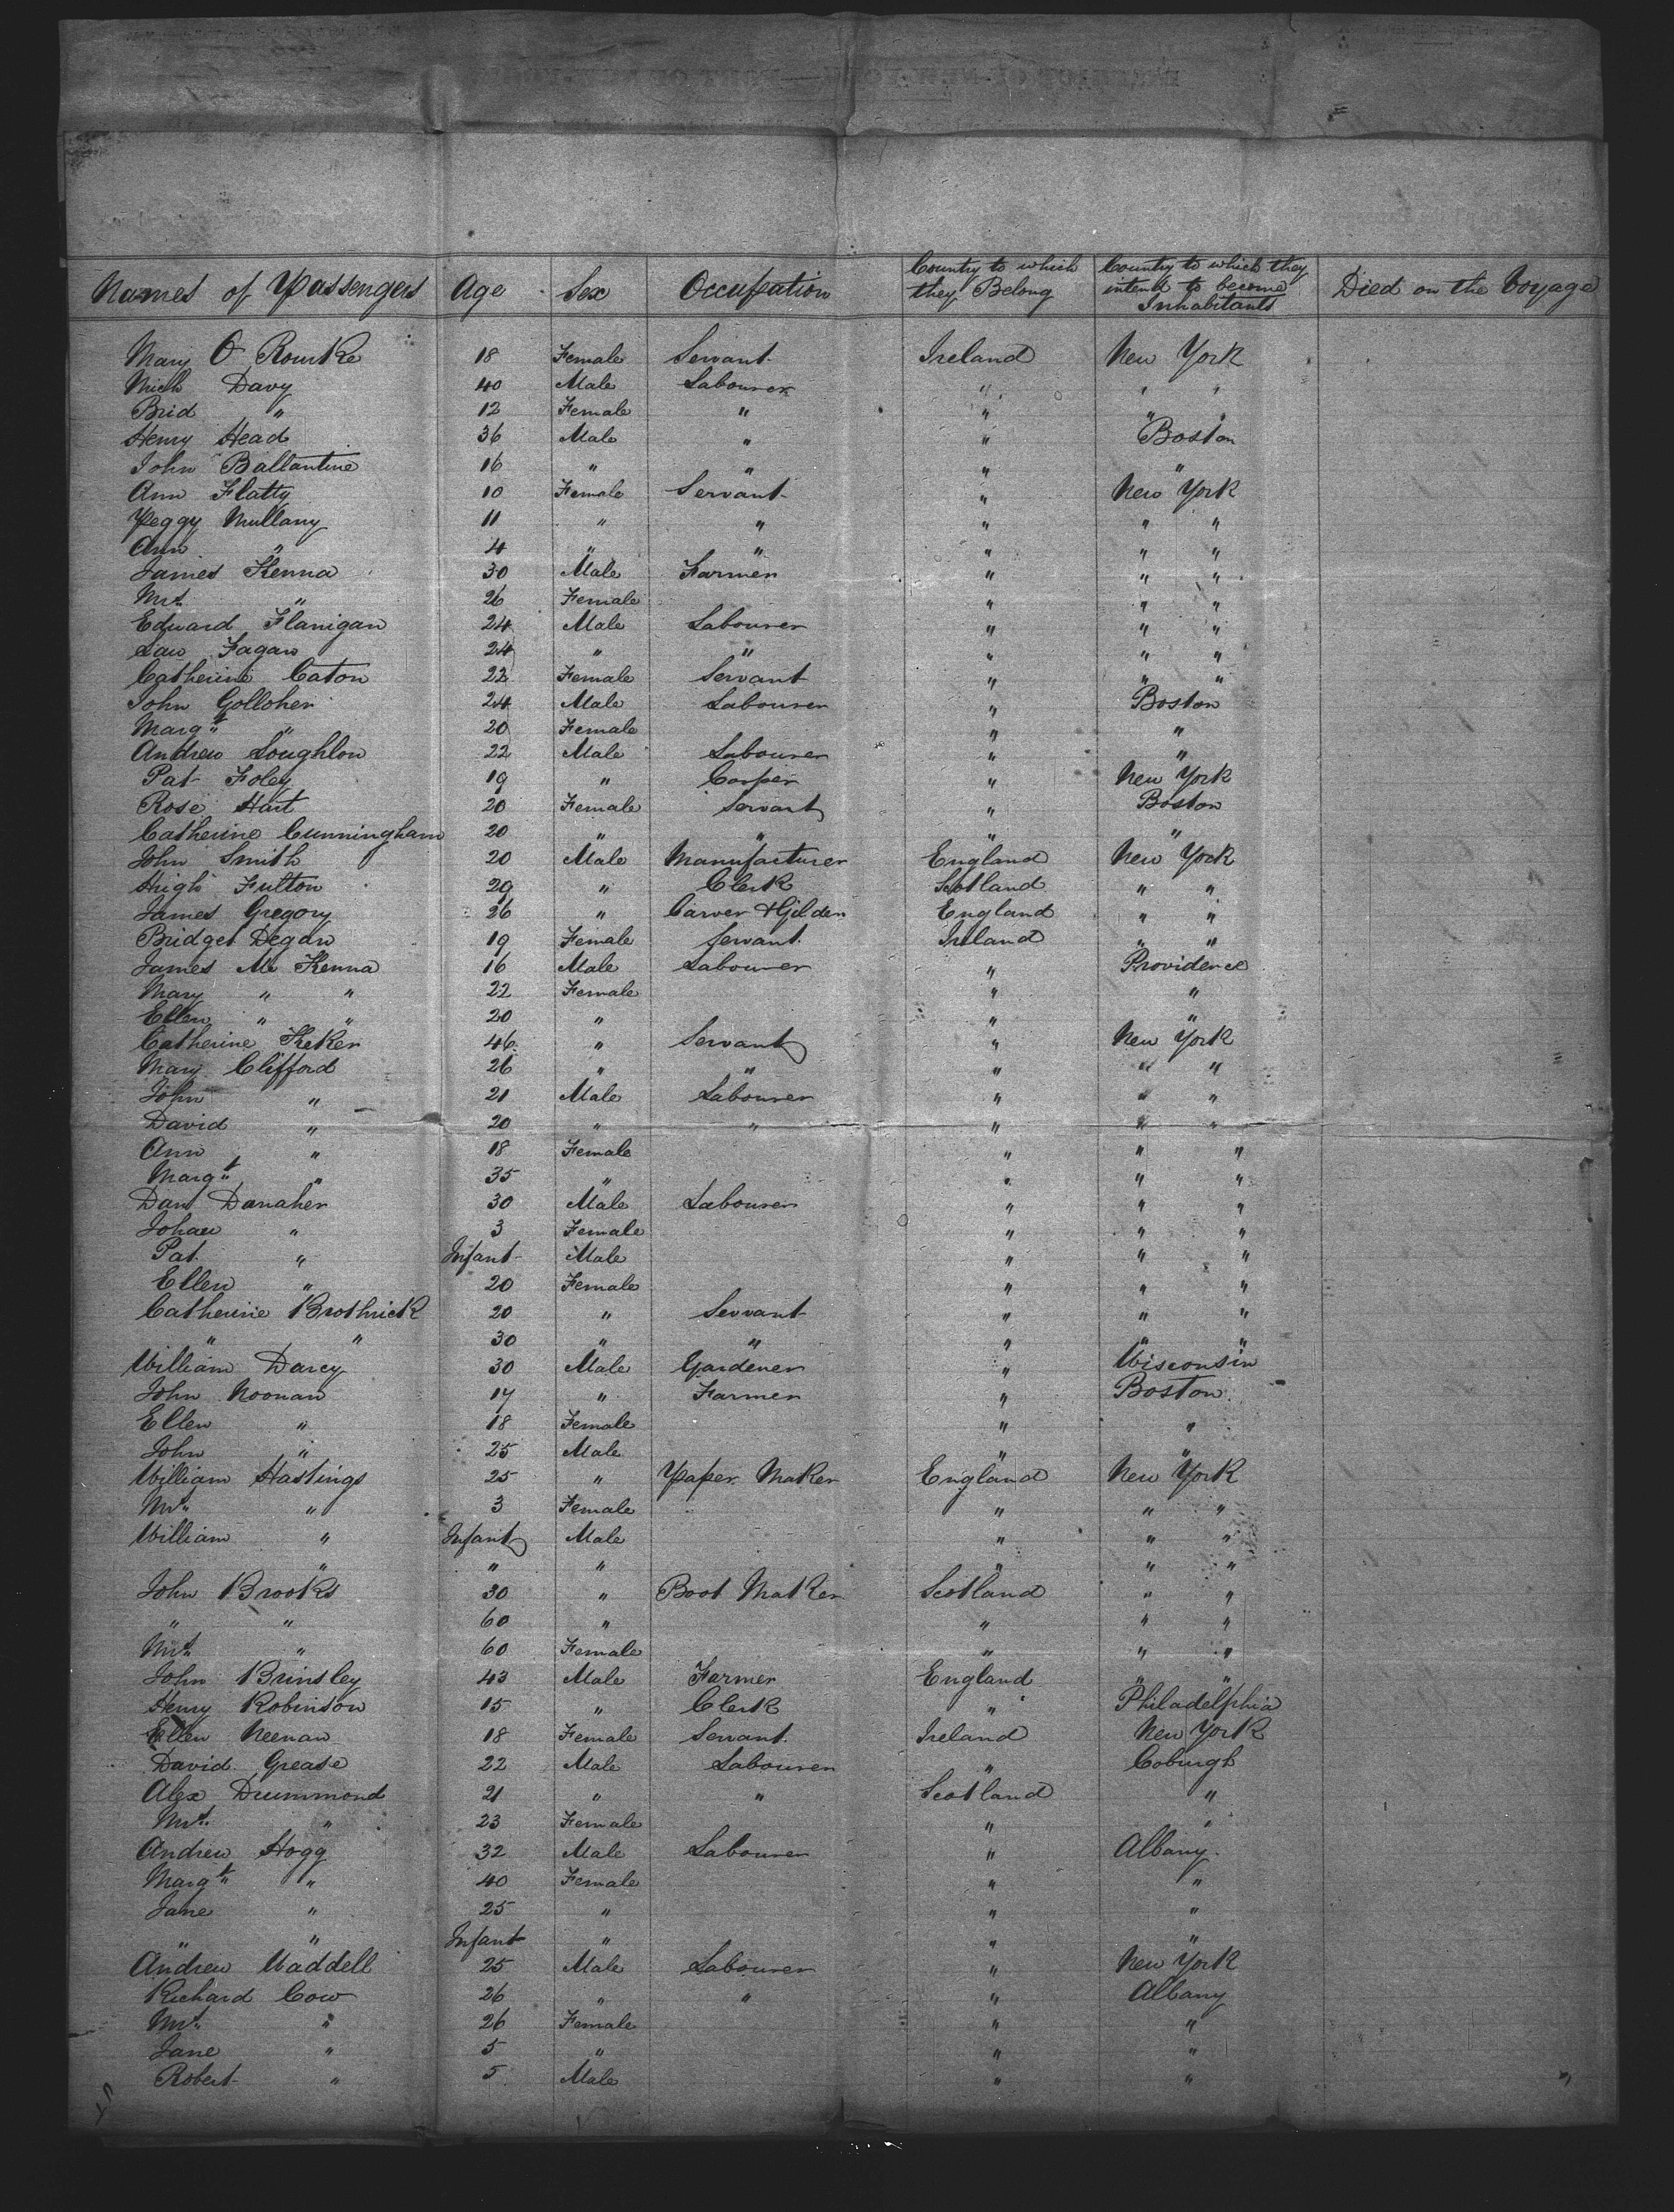 Names of Passengers Age Sex Occupation Country to which they Belong Country to which they intend to become Inhabitants Died on the Voyage
Mary O Rourke 18 Female Servant Ireland New York
Mich Davy 40 Male Labourer " " "
Brid " 12 Female " " " "
Henry Head 36 Male " " Boston
John Ballantine 16 " " " "
Ann Flatty 10 Female Servant " New York
Peggy Mullany 11 " " " " "
Ann " 4 " " " " "
James Kenna 30 Male Farmer " " "
Mrs " 26 Female " " "
Edward Flanigan 24 Male Labourer " " "
Law Fagan 24 " " " " "
Catherine Caton 22 Female Servant " " "
John Golloher 24 Male Labourer " Boston
Margt " 20 Female " "
Andrew Loughlon 22 Male Labourer " "
Pat Foley 19 " Cooper " New York
Rose Hart 20 Female Servant " Boston
Catherine Cunningham 20 " " " "
John Smith 20 Male Manufacturer England New York
Hugh Fulton 29 " Clerk Scotland " "
James Gregory 26 " Carver & Gilder England " "
Bridget Degan 19 Female Servant Ireland " "
James Mc Kenna 16 Male Labourer " Providence
Mary " " 22 Female " "
Ellen " " 20 " " "
Catherine Keker 46 " Servant " New York
Mary Clifford 26 " " " " "
John " 21 Male Labourer " " "
David " 20 " " " " "
Ann " 18 Female " " "
Margt " 35 " " " "
Dan Danaher 30 Male Labourer " " "
Johan " 3 Female " " "
Pat " Infant Male " " "
Ellen " 20 Female " " "
Catherine Brothrick 20 " Servant " " "
" " 30 " " " " "
William Darcy 30 Male Gardener " Wisconsin
John Noonan 17 " Farmer " Boston
Ellen " 18 Female " "
John " 25 Male " "
William Hastings 25 " Paper Maker England New York
Mrs " 3 Female " " "
William " Infant Male " " "
" " " " " "
John Brooks 30 " Boot Maker Scotland " "
" " 60 " " " "
Mrs " 60 Female " " "
John Brinsley 43 Male Farmer England " "
Henry Robinson 15 " Clerk " Philadelphia
Ellen Neenan 18 Female Servant Ireland New York
David Grease 22 Male Labourer " Coburgh
Alex Drummond 21 " " Scotland "
Mrs " 23 Female " "
Andrew Hogg 32 Male Labourer " Albany
Margt " 40 Female " "
Jane " 25 " " "
" " Infant " " "
Andrew Waddell 25 Male Labourer " New York
Richard Cow 26 " " " Albany
Mrs " 26 Female " "
Jane " 5 " " "
Robert " 5 Male " "